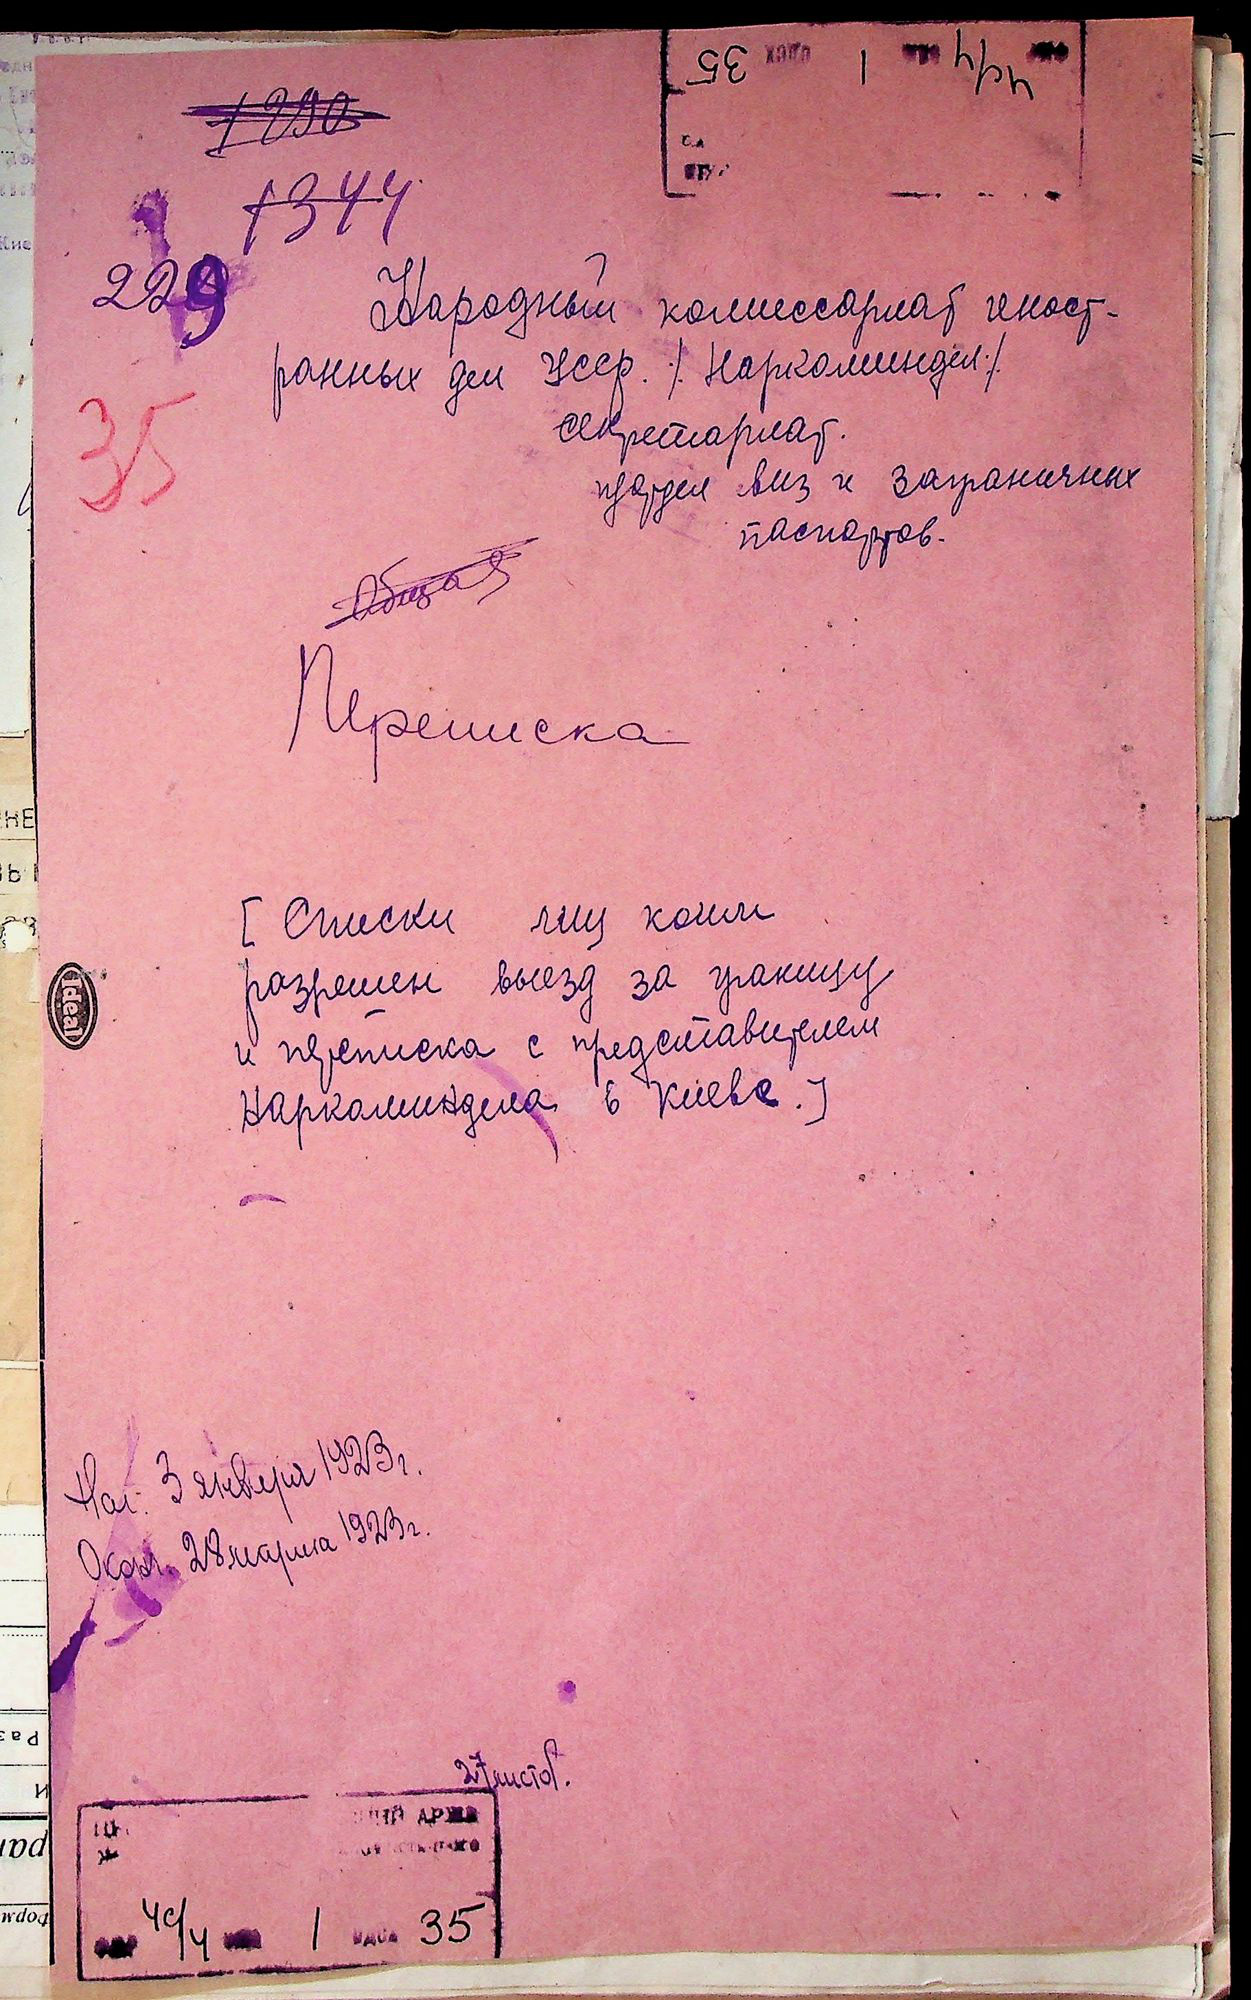 1290
1344
229
35
Народный комиссариат иност-
ранных дел УССР. /. Наркоминдел ./
секретариат.
п/отдел виз и заграничных
паспортов.
Общая
Переписка
[ Списки лиц коим
разрешен выезд за границу
и переписка с представителем
Наркоминдела в Киеве. ]
Ideal
Нач. 3 января 1923 г.
Окон. 28 марта 1923 г.
27 листов.
АРХИВ
4с/4 1 35
4с/4 1 35